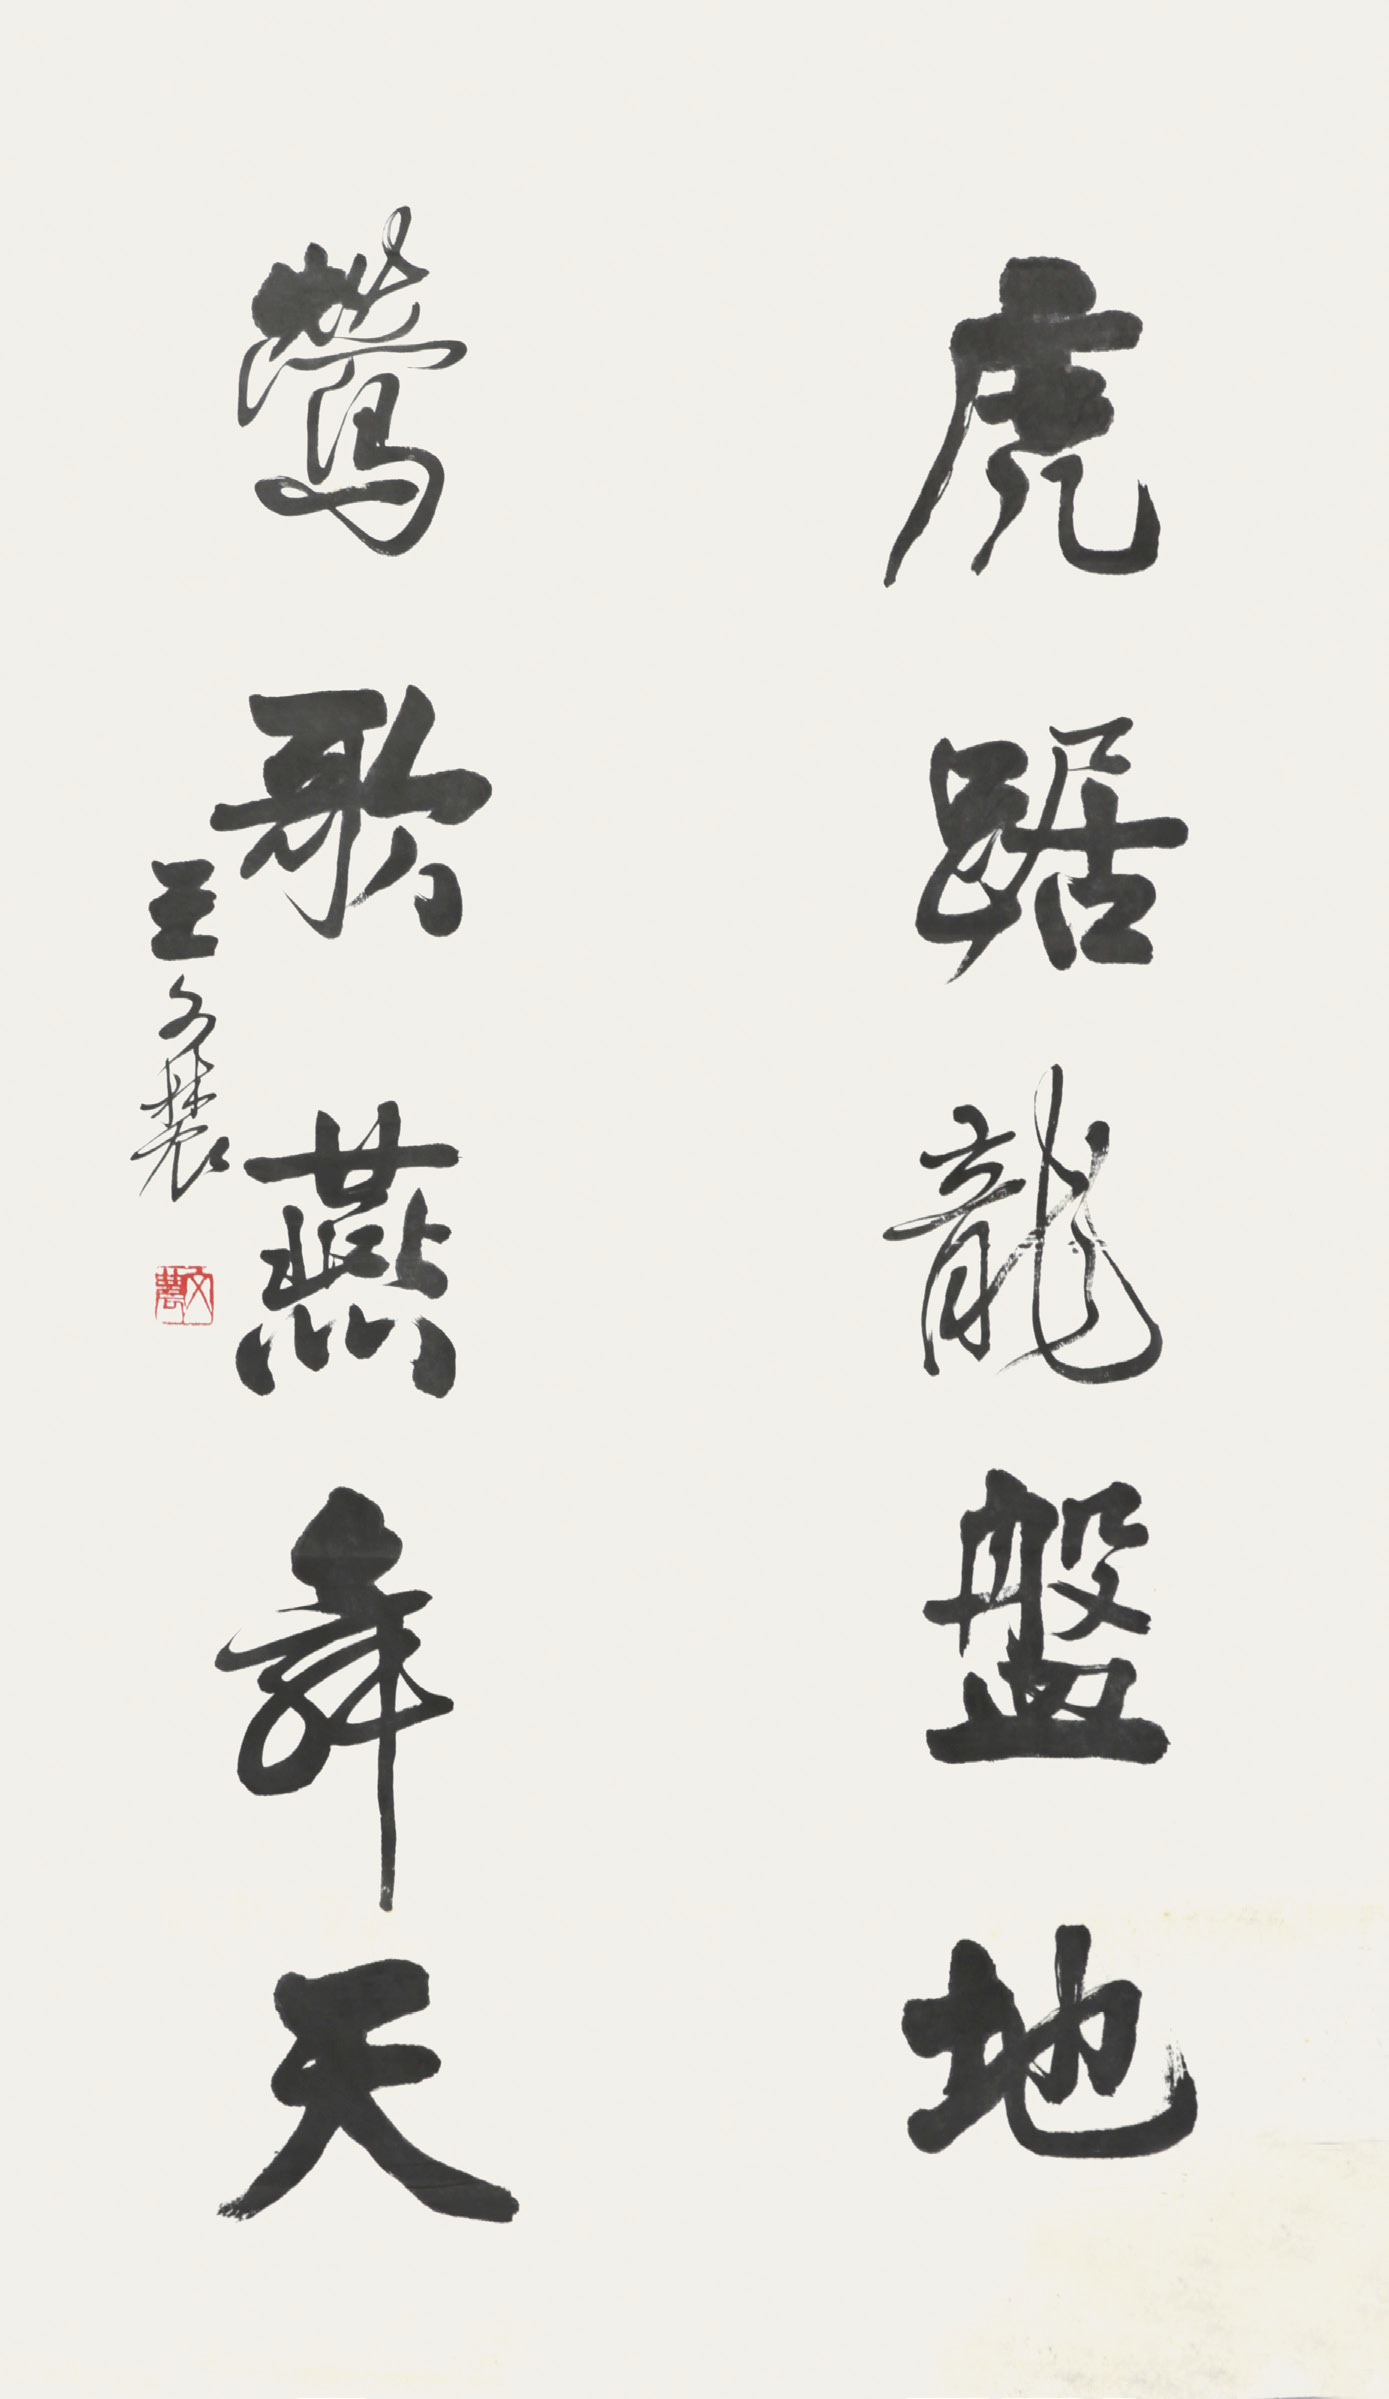 虎踞龍盤地
鶯歌燕舞天
王文農
文農